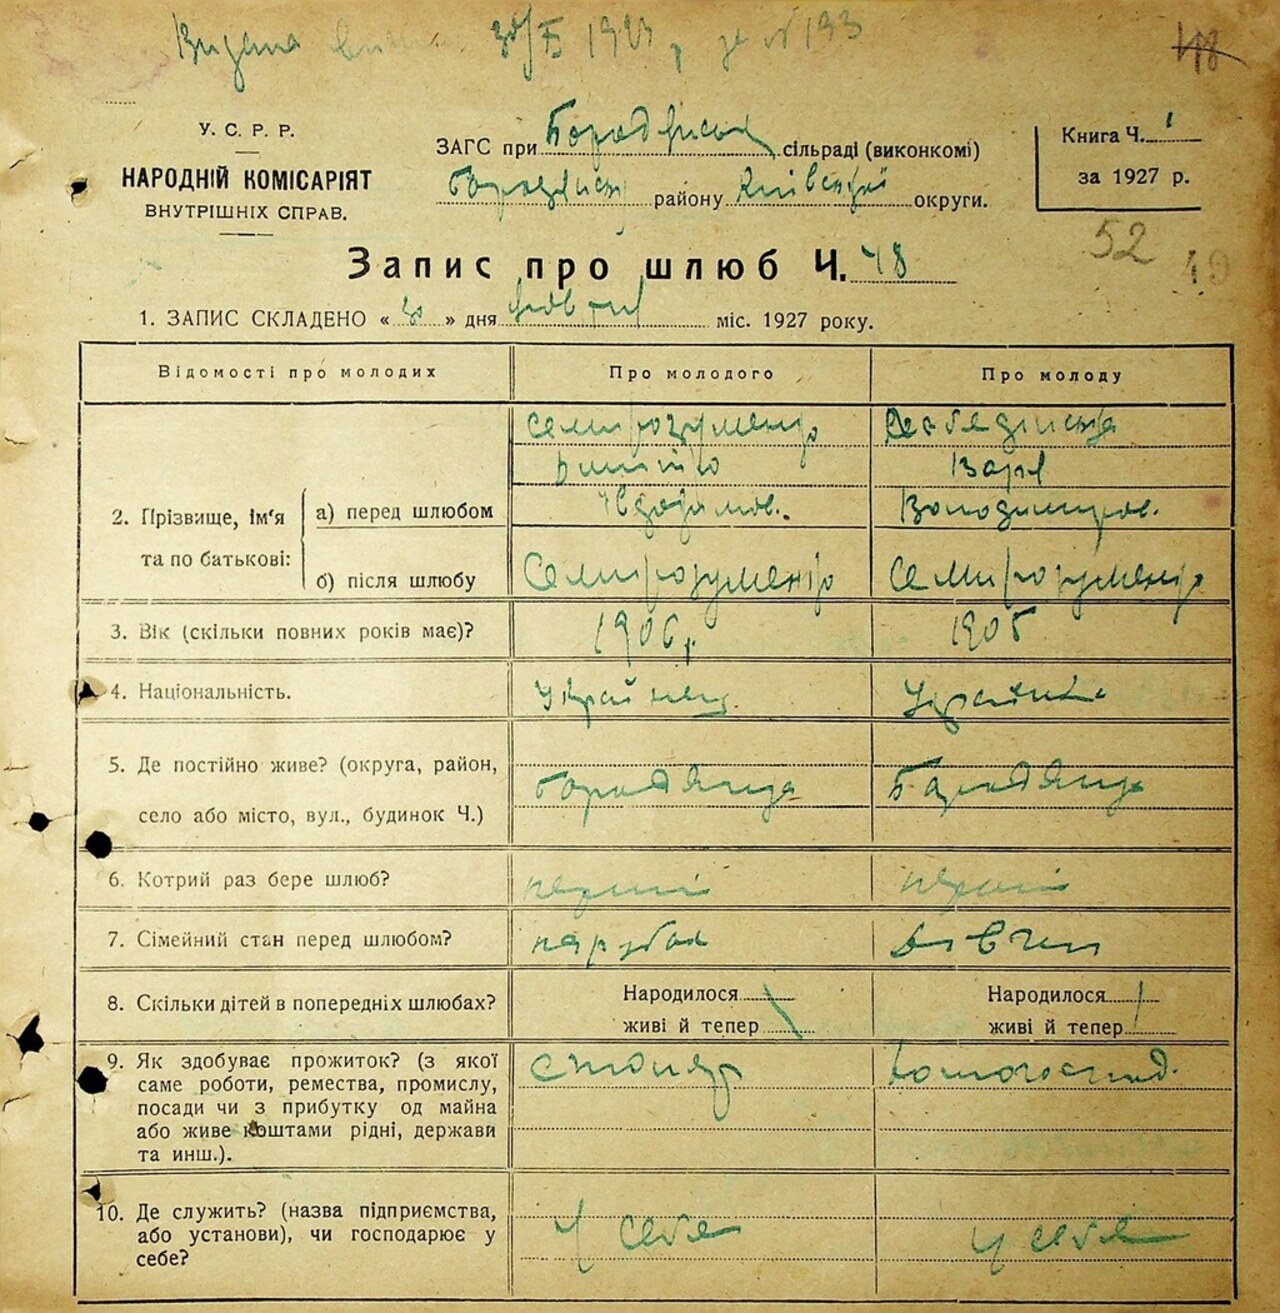 Видана
№ 193
48
У. С. Р. Р.
НАРОДНІЙ КОМІСАРІЯТ
ВНУТРІШНІХ СПРАВ.
ЗАГС при Бородянській сільраді (виконкомі)
району Київської округи.
Книга Ч. 1
за 1927 р.
52
49
Запис про шлюб Ч. 48
1. ЗАПИС СКЛАДЕНО « » дня міс. 1927 року.
Відомості про молодих
Про молодого
Про молоду
2. Прізвище, ім'я та по батькові:
а) перед шлюбом
Семирозуменко
Дмитро
Варя
Володимиров.
б) після шлюбу
Семирозуменко
Семирозуменко
3. Вік (скільки повних років має)?
1906 р.
1905
4. Національність.
Українец
Українка
5. Де постійно живе? (округа, район,
село або місто, вул., будинок Ч.)
Бородянка
Бородянка
6. Котрий раз бере шлюб?
перший
перший
7. Сімейний стан перед шлюбом?
парубок
дівчина
8. Скільки дітей в попередніх шлюбах?
Народилося
живі й тепер
Народилося
живі й тепер
9. Як здобуває прожиток? (з якої
саме роботи, ремества, промислу,
посади чи з прибутку од майна
або живе коштами рідні, держави
та инш.).
столяр
домогоспод.
10. Де служить? (назва підприємства,
або установи), чи господарює у
себе?
у себе
у себе